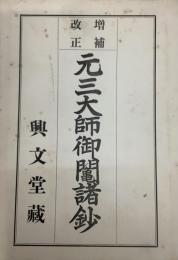 増補
改正
元三大師御鬮諸鈔
興文堂藏